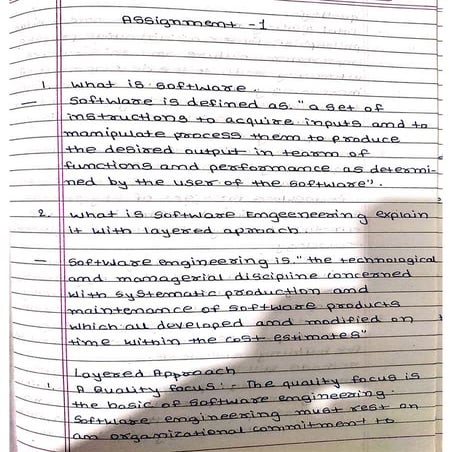 Assignment - 1
1. What is software.
— Software is defined as. "a set of
instructions to acquire inputs and to
manipulate process them to produce
the desired output in tearm of
functions and performance as determi-
ned by the user of the software".
2. What is software Engeeneering explain
it with layered aproach
— Software engineering is "the technological
and managerial discipline concerned
with systematic production and
maintenance of software products
which all developed and modified on
time within the cost estimates"
Layered Approach
1. A Quality focus :- The quality focus is
the basic of software engineering.
Software engineering must rest on
an organizational commitment to